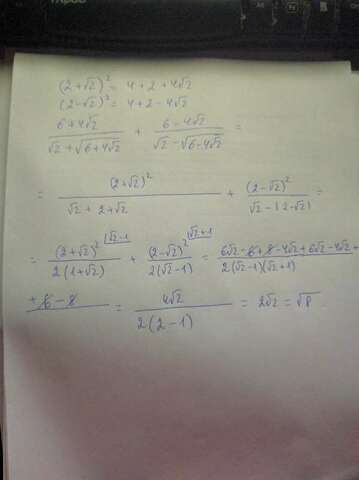 (2+√2)² = 4+2+4√2
(2-√2)² = 4+2-4√2
(6+4√2)/(√2+√(6+4√2)) + (6-4√2)/(√2-√(6-4√2)) =
= (2+√2)²/(√2+2+√2) + (2-√2)²/(√2-(2-√2)) =
= (2+√2)²^{|√2-1}/(2(1+√2)) + (2-√2)²^{|√2+1}/(2(√2-1)) = (6√2-6+8-4√2+6√2-4√2+
+6-8)/ = 4√2/(2(2-1)) = 2√2 = √8